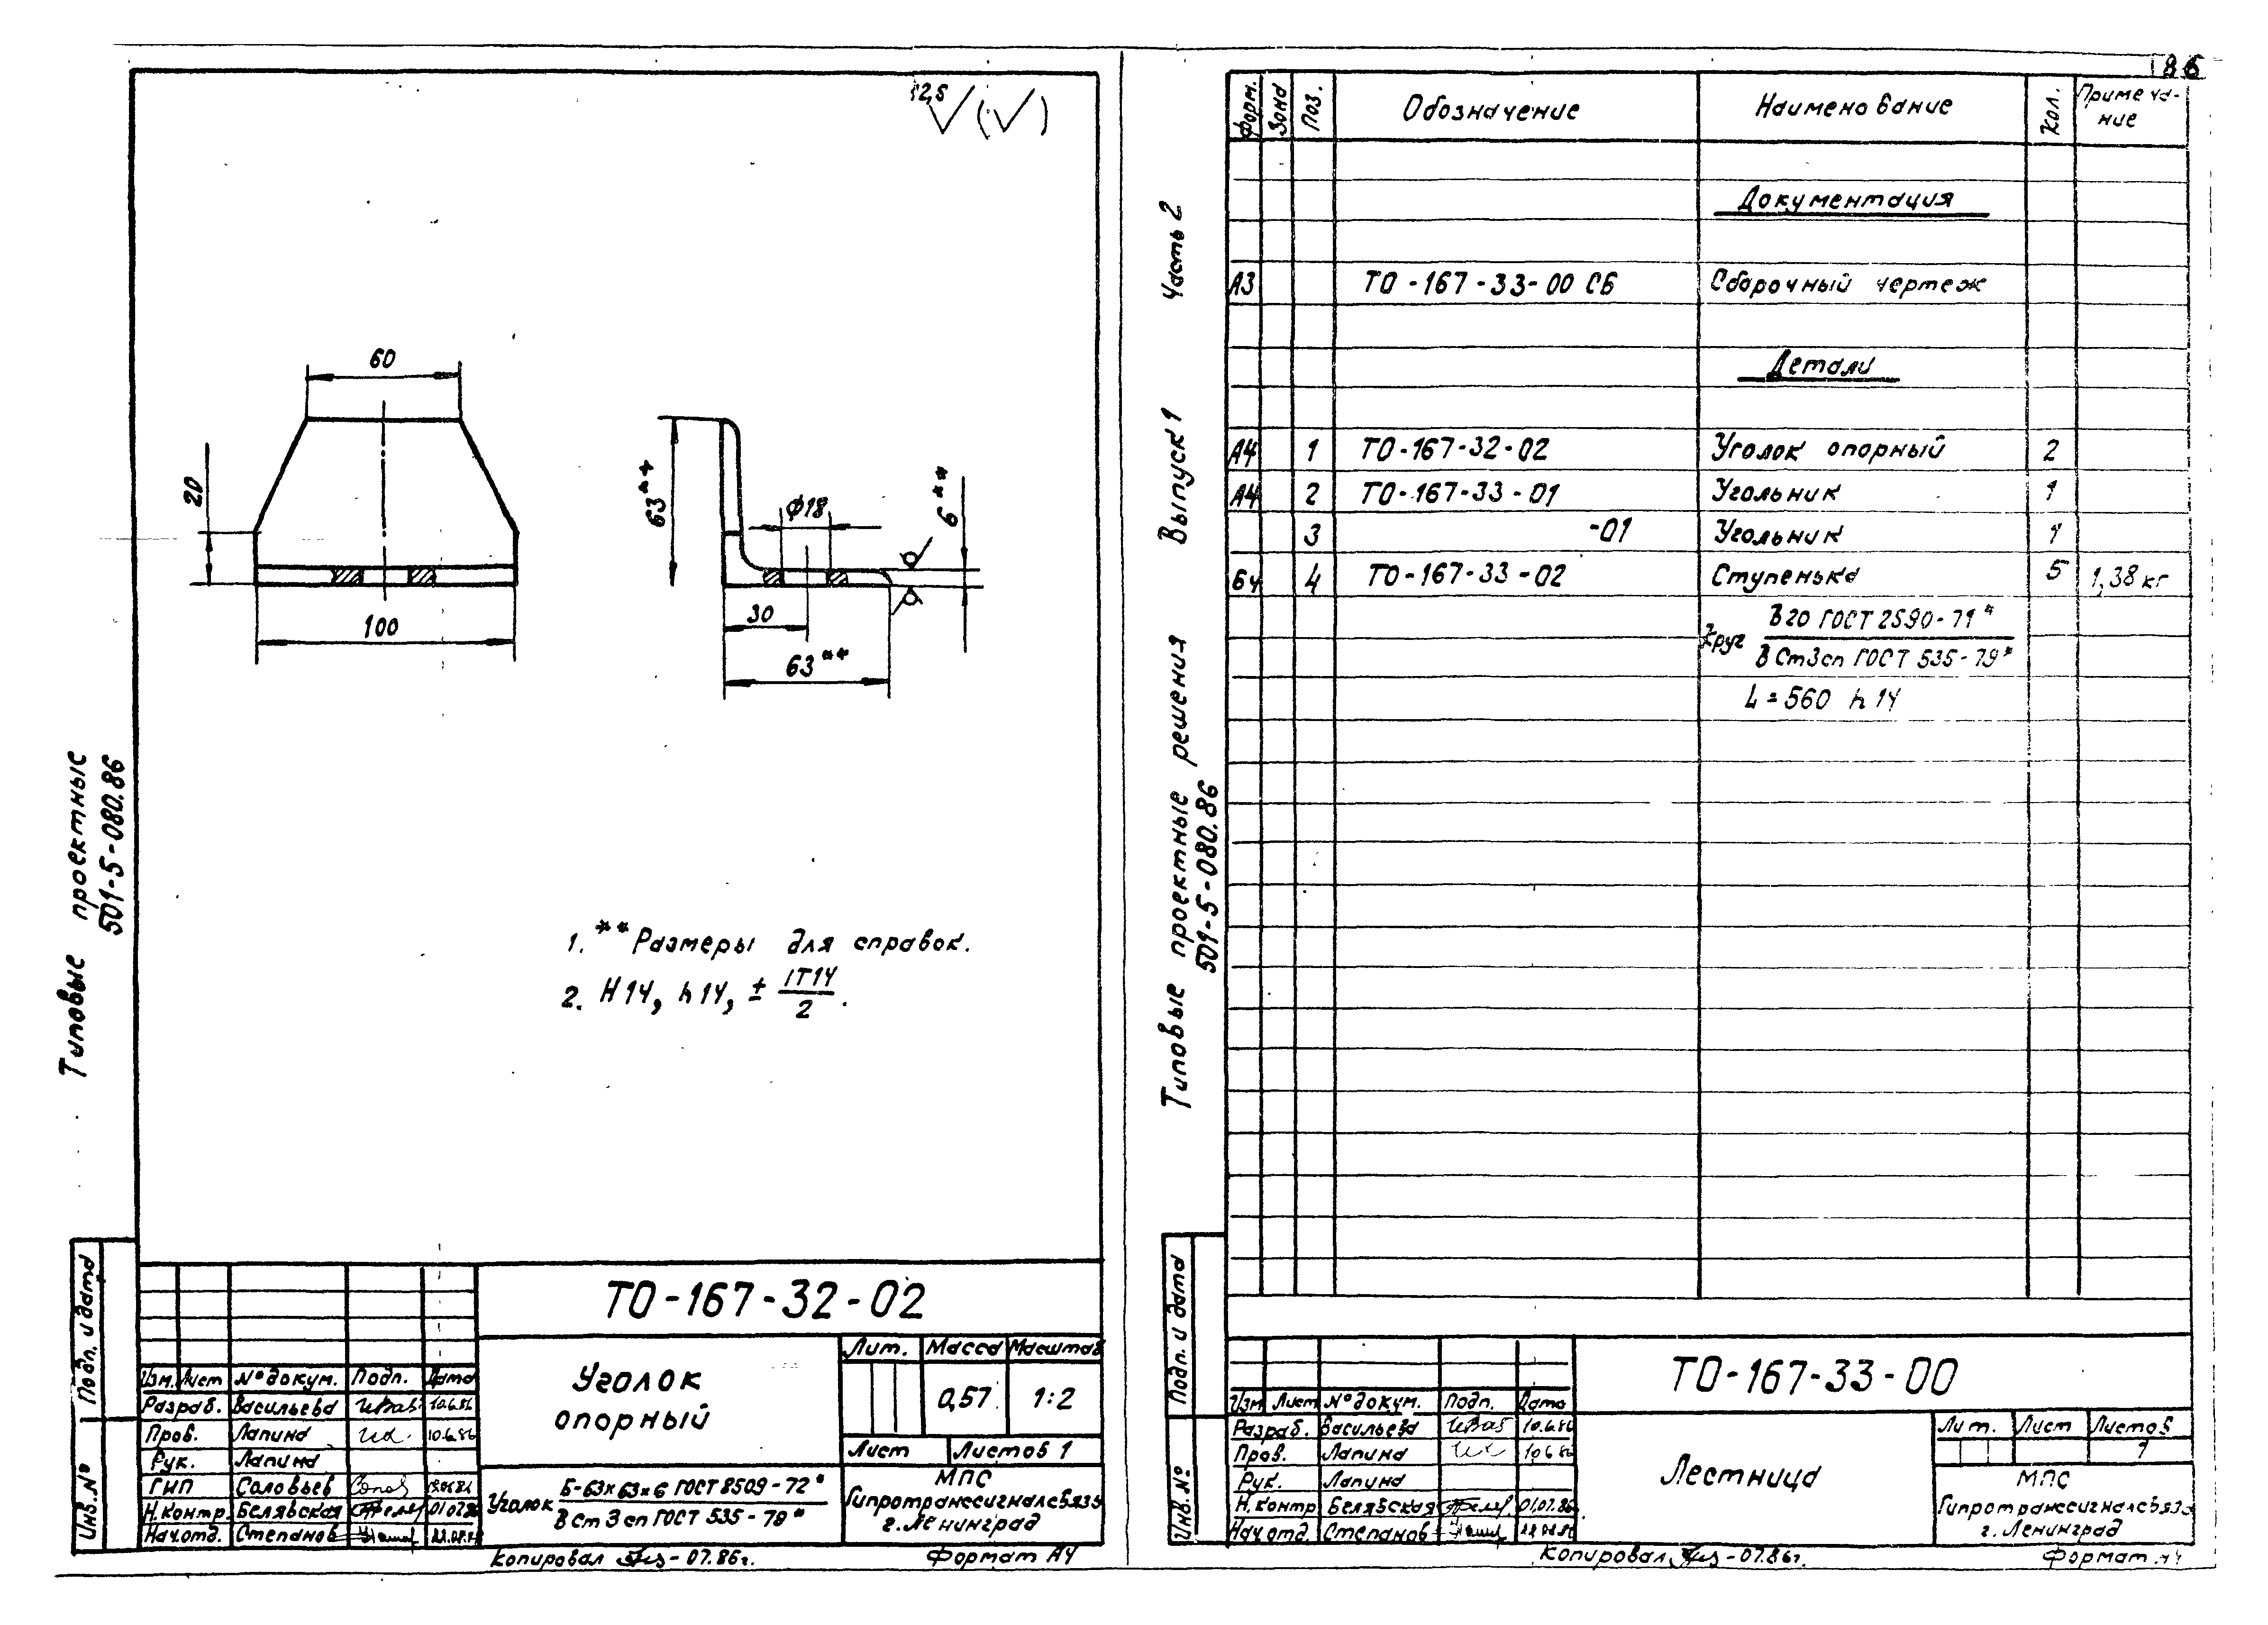 86
12,5 (✓)
60
20
100
63**
⌀18
6**
30
63**
1. ** Размеры для справок.
2. H14, h14, ± IT14/2.
Типовые проектные
501-5-080.86
Подп. и дата
Инв. №
ТО-167-32-02
Уголок
опорный
Лит. Масса Масштаб
0,57 1:2
Лист Листов 1
Изм. Лист № докум. Подп. Дата
Разраб. Васильева 10.6.86
Пров. Лапина 10.6.86
Рук. Лапина
ГИП Соловьев
Н.контр. Белявская 01.07.86
Нач.отд. Степанов
Уголок Б-63х63х6 ГОСТ 8509-72*
В Ст 3 сп ГОСТ 535-79*
МПС
Гипротранссигналсвязь
г. Ленинград
Копировал -07.86г. Формат А4
Типовые проектные решения Выпуск 1 Часть 2
501-5-080.86
Форм. Зона Поз. Обозначение Наименование Кол. Примечание
Документация
А3 ТО-167-33-00 СБ Сборочный чертеж
Детали
А4 1 ТО-167-32-02 Уголок опорный 2
А4 2 ТО-167-33-01 Угольник 1
3 -01 Угольник 1
Бч 4 ТО-167-33-02 Ступенька 5 1,38 кг
Круг В20 ГОСТ 2590-71*
В Ст3сп ГОСТ 535-79*
L=560 h14
Подп. и дата
Инв. №
ТО-167-33-00
Изм Лист № докум. Подп. Дата
Разраб. Васильева 10.6.86
Пров. Лапина 10.6.86
Рук. Лапина
Н.контр. Белявская 01.07.86
Нач.отд. Степанов
Лестница
Лит. Лист Листов
1
МПС
Гипротранссигналсвязь
г. Ленинград
Копировал -07.86г. Формат А4